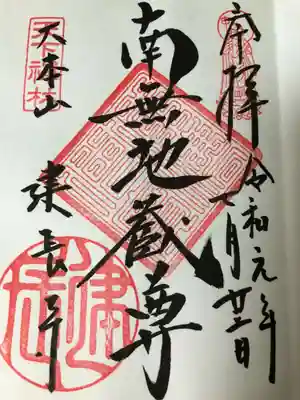 奉拝
令和元年
七月日
南無地蔵尊
天下禅林
大本山
建長寺